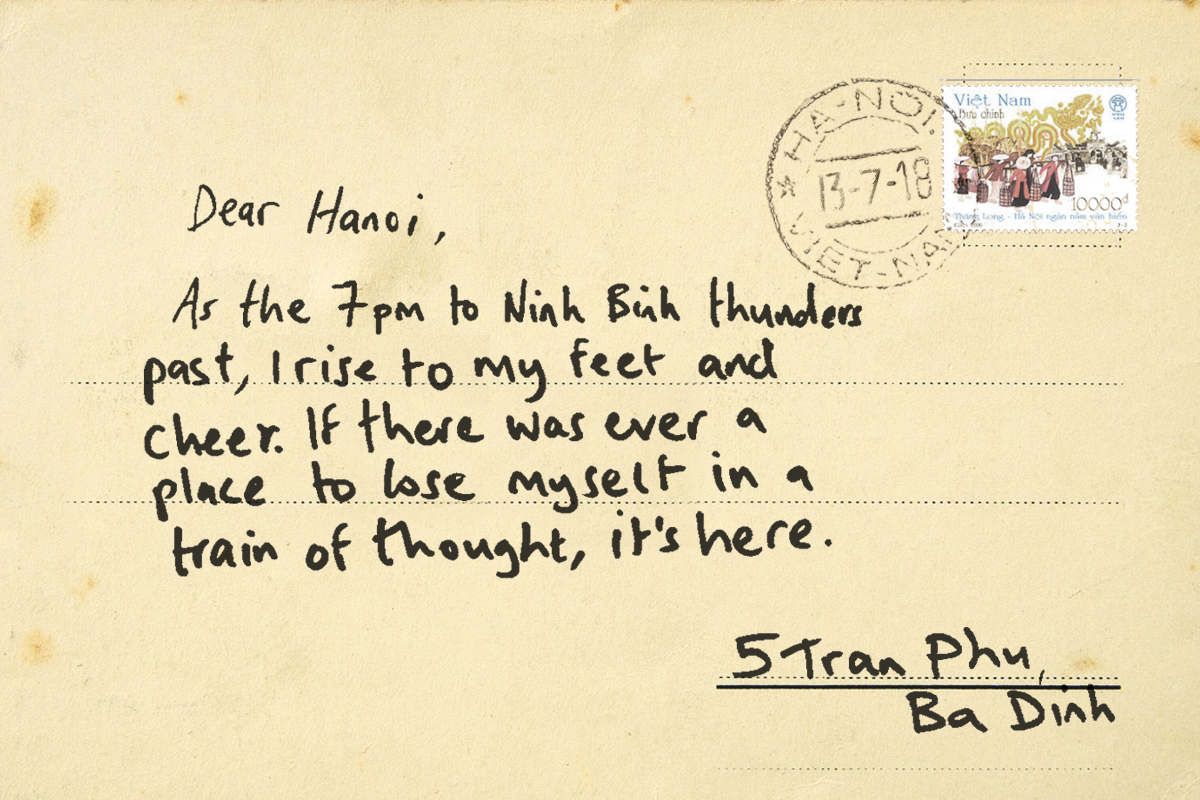 Việt Nam
Bưu chính
HÀ-NỘI.
13-7-18
VIET-NAM
10000đ
Thăng Long - Hà Nội ngàn năm văn hiến
Dear Hanoi,
As the 7pm to Ninh Binh thunders
past, I rise to my feet and
cheer. If there was ever a
place to lose myself in a
train of thought, it's here.
5 Tran Phu,
Ba Dinh